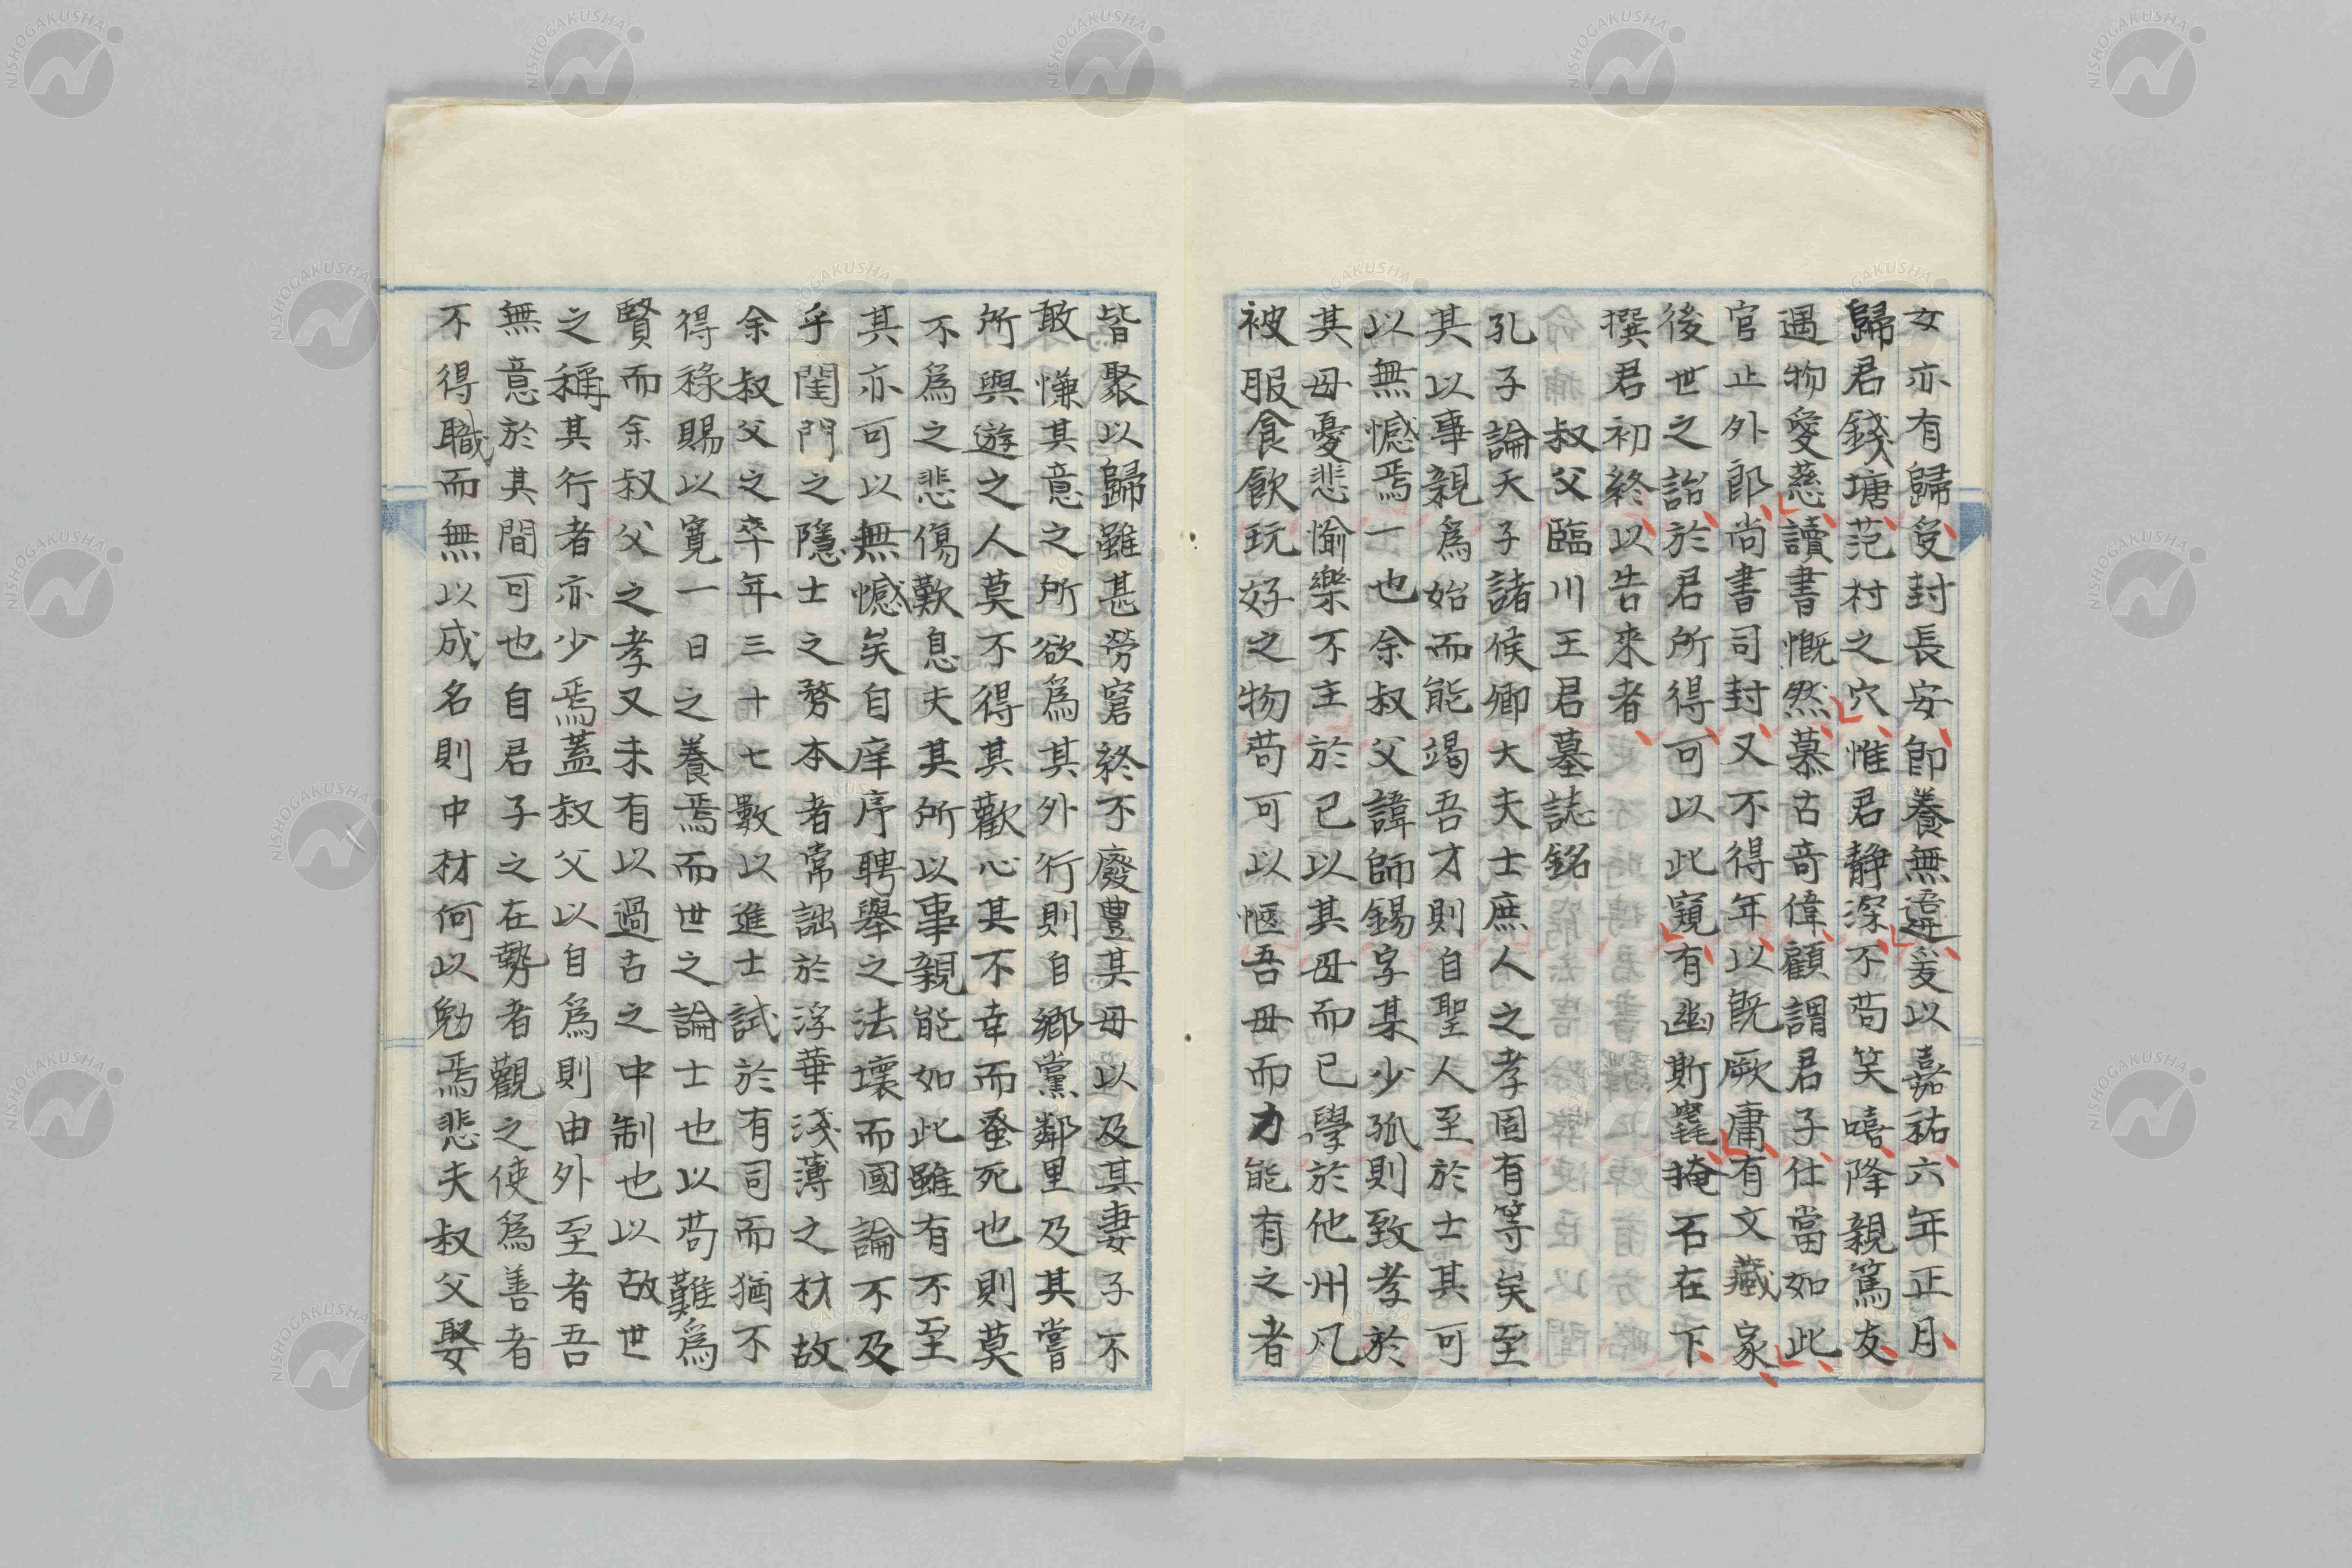 女亦有歸受封長安卽養無違爰以嘉祐六年正月
歸君錢塘范村之穴惟君靜深不苟笑嘻降親篤友
遇物愛慈讀書慨然慕古奇偉顧謂君子仕當如此
官止外郎尚書司封又不得年以旣厥庸有文藏家
後世之詒於君所得可以此窺有幽斯竁掩石在下
撰君初終以告来者
叔父臨川王君墓誌銘
孔子論天子諸侯卿大夫士庶人之孝固有等矣至
其以事親爲始而能竭吾才則自聖人至於士其可
以無憾焉一也余叔父諱師錫字某少孤則致孝於
其母憂悲愉樂不主於已以其母而已學於他州凡
被服食飲玩好之物苟可以愜吾母而力能有之者
皆聚以歸雖甚勞窘終不廢豊其母以及其妻子不
敢慊其意之所欲爲其外行則自鄉黨鄰里及其嘗
所與遊之人莫不得其歡心其不幸而蚤死也則莫
不爲之悲傷歎息夫其所以事親能如此雖有不至
其亦可以無憾矣自庠序聘舉之法壞而國論不及
乎閨門之隱士之務本者常詘於浮華淺薄之材故
余叔父之卒年三十七數以進士試於有司而猶不
得祿賜以寬一日之養焉而世之論士也以苟難爲
賢而余叔父之孝又未有以過古之中制也以故世
之稱其行者亦少焉蓋叔父以自爲則由外至者吾
無意於其間可也自君子之在勢者觀之使爲善者
不得職而無以成名則中材何以勉焉悲夫叔父娶